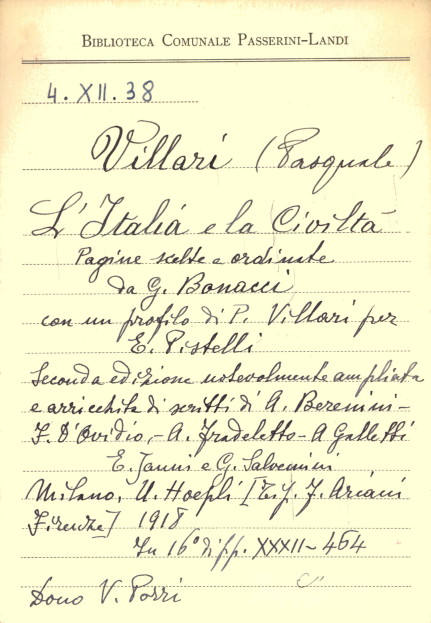 BIBLIOTECA COMUNALE PASSERINI-LANDI
4. XII. 38
Villari (Pasquale)
L'Italia e la Civiltà
Pagine scelte e ordinate
da G. Bonacci
con un profilo di P. Villari per
E. Pistelli
Seconda edizione notevolmente ampliata
e arricchita di scritti di A. Berenini -
F. D'Ovidio, - A. Fradeletto - A Galletti
E. Janni e G. Salvemini
Milano, U. Hoepli [Tip. F. Ariani
Firenze] 1918
In 16° di pp. XXXII - 464
Dono V. Porri